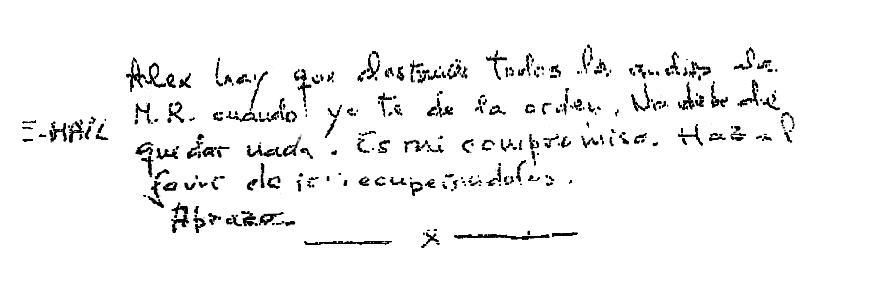 Alex hay que destruir todos los audios de
E-MAIL M.R. cuando yo te de la orden. No debe de
quedar nada. Es mi compromiso. Haz el
favor de ir recuperandolos.
Abrazo.
x